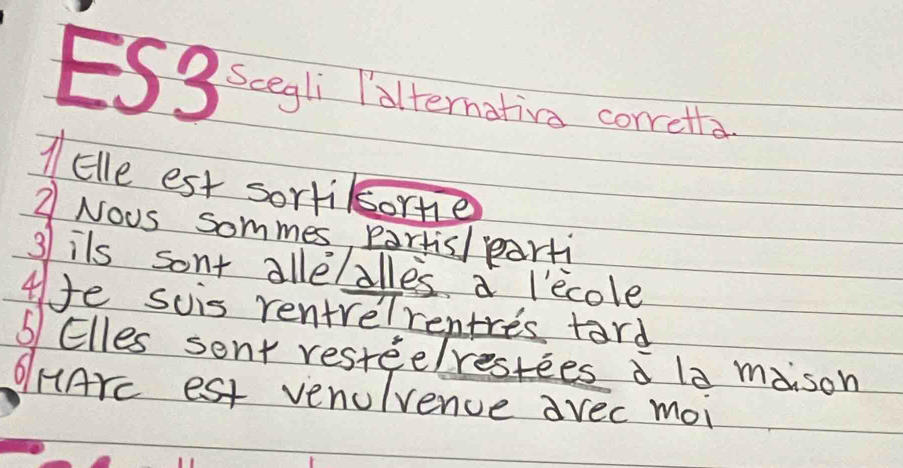 ES3 Scegli l'alternativa corretta.
1) Elle est sorti/sortie
2) Nous sommes partis/parti
3) ils sont allé/allès à l'ècole
4) Je suis rentré/rentrés tard
5) Elles sont restée/restées à la maison
6) MArc est venu/venue avec moi